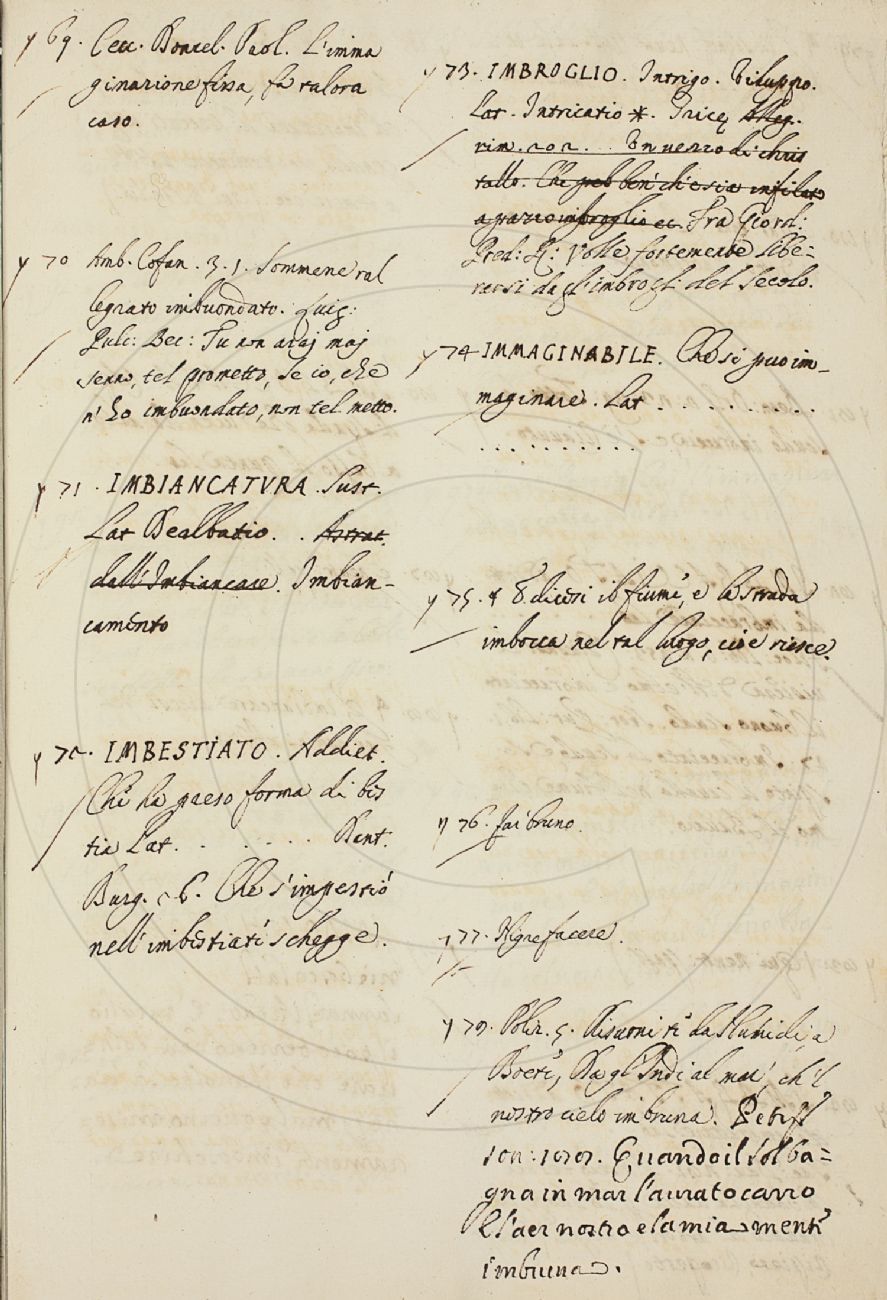 y 69. Cecc. Donzel. Paol. L'imma
ginazione fissa, fa talora
caso.
y 70 Amb. Cofan. 3. 1. Sommene ral
legrato imbuondato. Luig:
Pulc: Bec: Tu non arai mai
senno, tel prometto, se io, che
n' ho imbuondato, non tel metto.
y 71. IMBIANCATVRA. Sust.
Lat Dealbatio. . Astrat.
dall' Imbiancare. Imbian-
camento
y 72. IMBESTIATO. Addiet.
Che ha preso forma di bes
tia Lat. . . . . . . Dant.
Purg. 26. Che s'imbestiò
nell' imbestiate schegge.
y 73. IMBROGLIO. Intrigo. Viluppo.
Lat. Intricatio *. Tricę Alleg.
rim. 202. . . Un vezzo di chris
tallo. Che ben ch' e sia infilato
imbroglio ec. Fra Giord:
Pred: R: Volle fortemente libe=
rarsi dagl' imbrogli del Secolo.
y 74 IMMAGINABILE. Che si puo im-
maginare. Lat . . . . . . . .
. . . . . . . . . .
y 75. E dicesi il fiume, e la strada
imbocca nel tal luogo, cioè riesce.
y 76. far bruno.
y 77. Nigrefacere.
y 79. Poliz. 5. Risuoni ti da Numidi, a
Boeti, Dagl' Indi al mar, ch' il
nostro cielo imbruna. Petr
son: Quando il Sol ba=
gna in mar l'aurato carro
E l'aer nostro e la mia mente
imbruna.